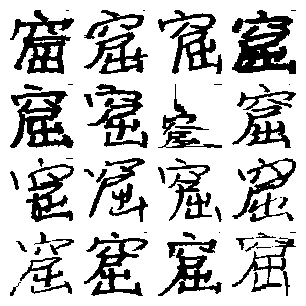 窟窟窟窟
窟窟窟窟
窟窟窟窟
窟窟窟窟